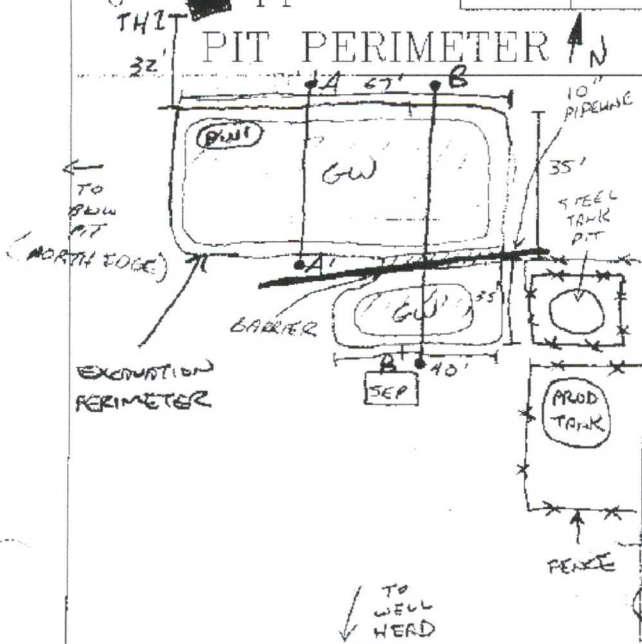 TH2
PIT PERIMETER
N
32'
A
67'
B
10"
PIPELINE
GW
35'
TO
PIT
(NORTH EDGE)
STEEL
TANK
PIT
A'
BARRIER
GW
35'
EXCAVATION
PERIMETER
B'
40'
SEP
PROD
TANK
FENCE
TO
WELL
HEAD